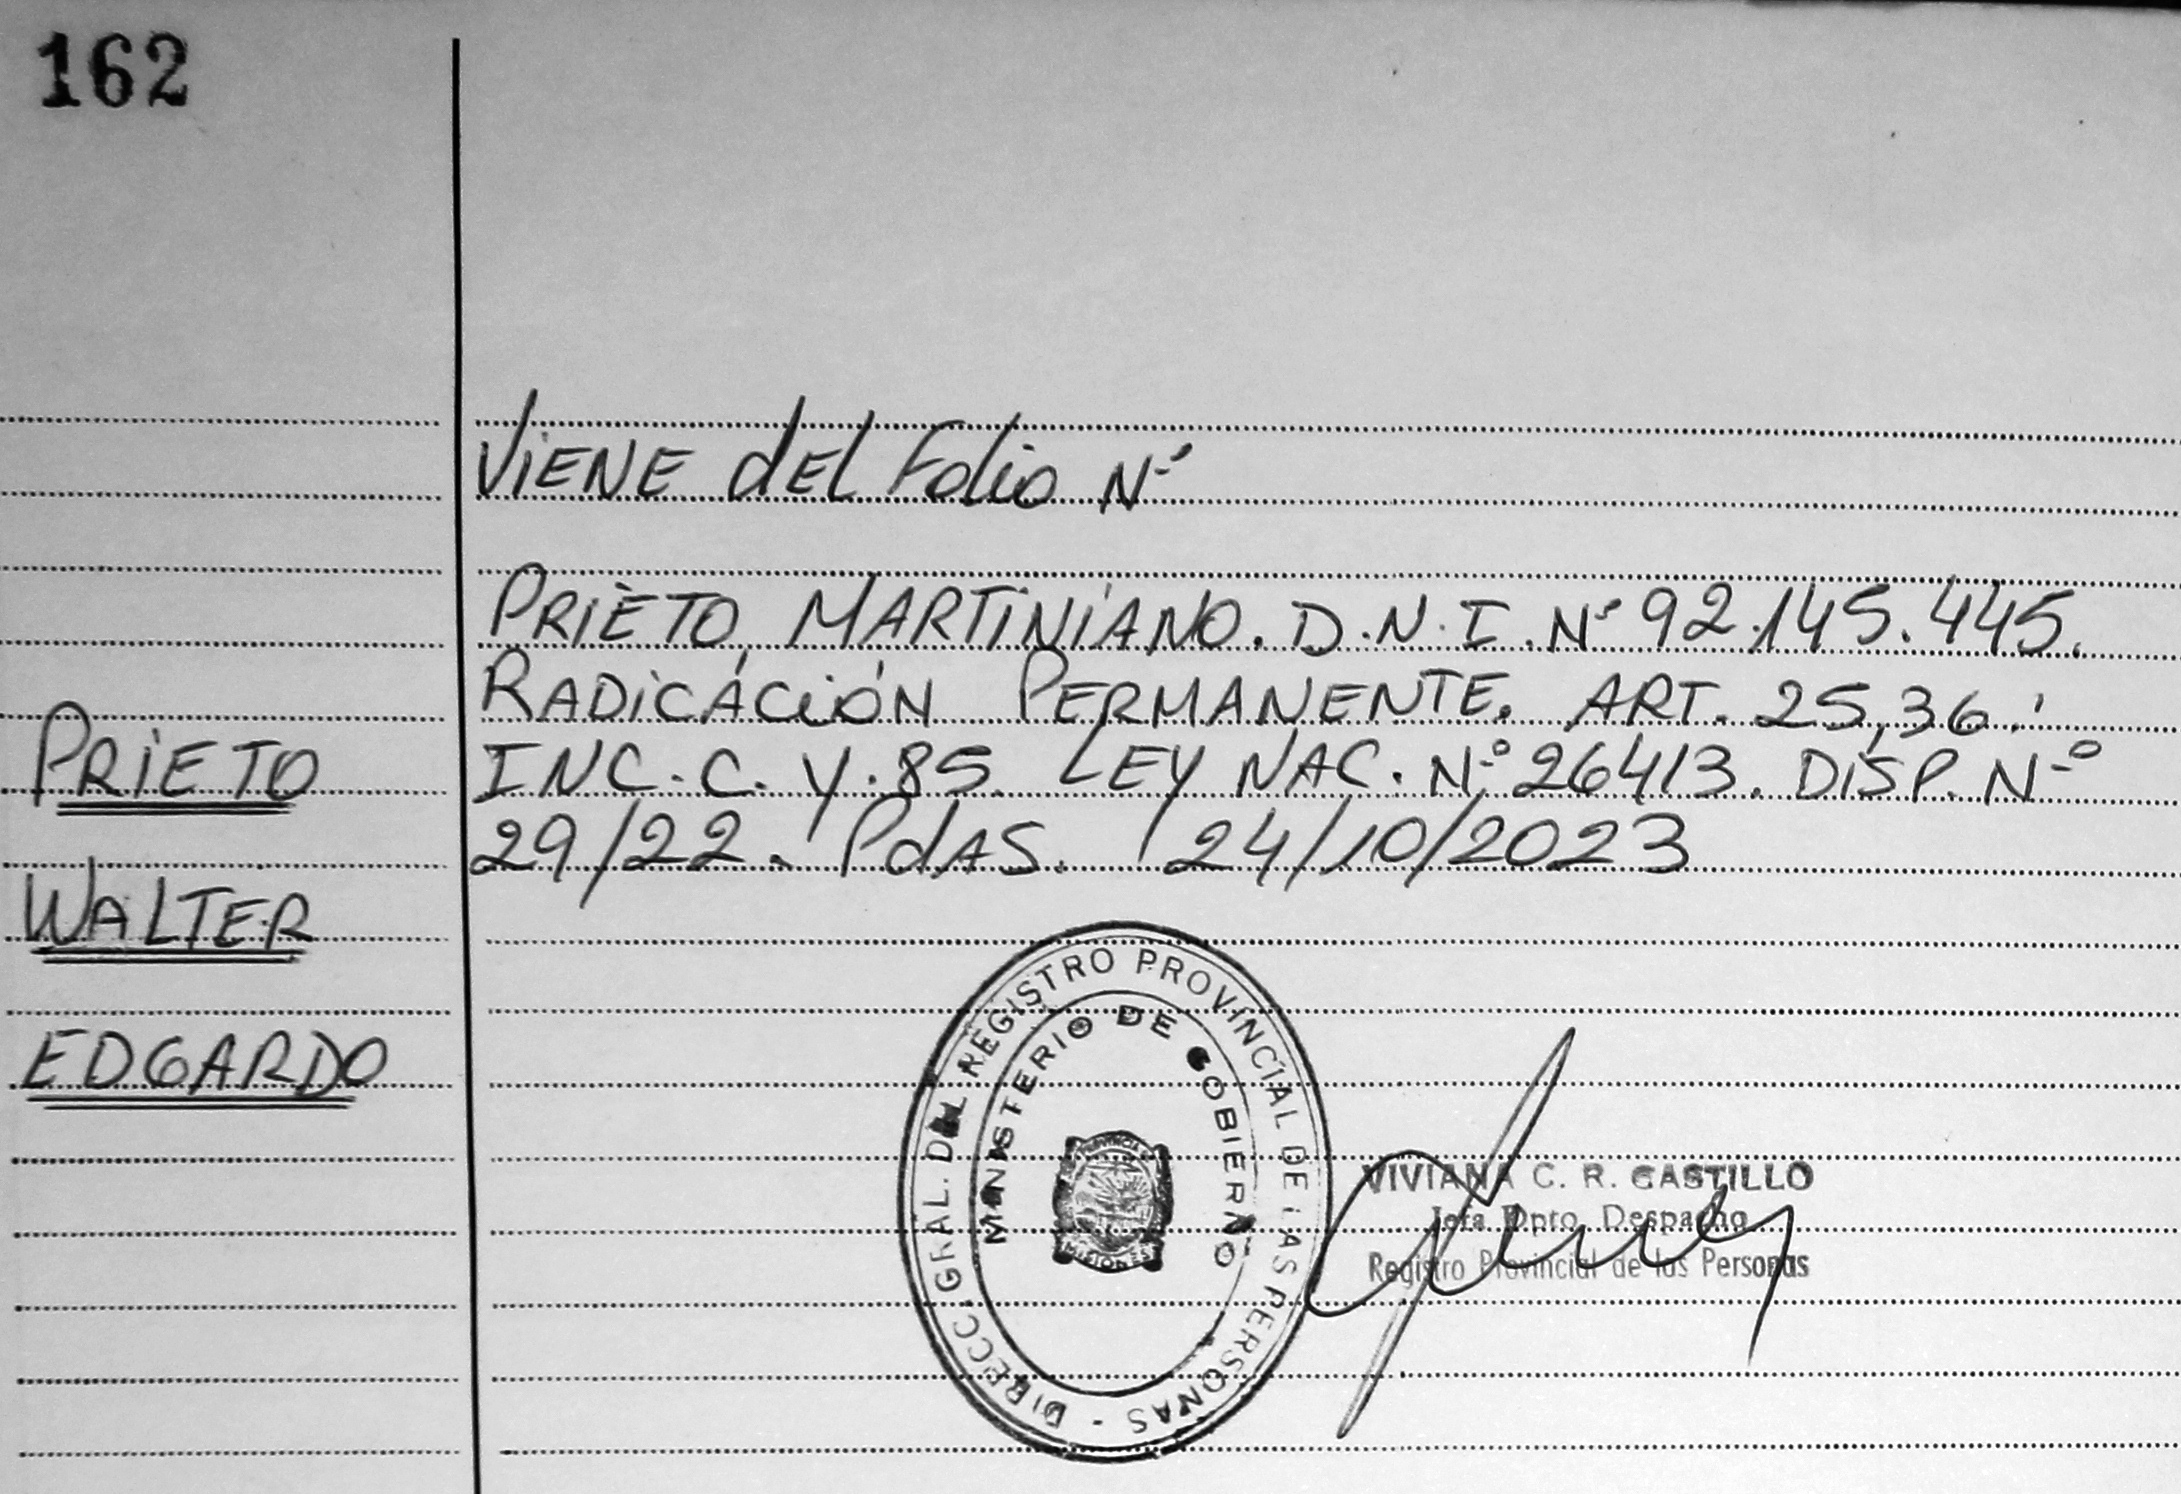 162
VIENE dEL Folio Nº
PRIETO, MARTINIANO. D.N.I. Nº 92.145.445.
RADICÁCIÓN PERMANENTE. ART. 25,36.
INC. C. Y. 85. LEY NAC. Nº 26413. DISP. Nº
29/22. PdAS. 24/10/2023
PRIETO
WALTER
EDGARDO
DIRECC. GRAL. DEL REGISTRO PROVINCIAL DE LAS PERSONAS -
MINISTERIO DE GOBIERNO
PROVINCIA
MISIONES
VIVIANA C. R. CASTILLO
Jefa Dpto. Despacho
Registro Provincial de las Personas